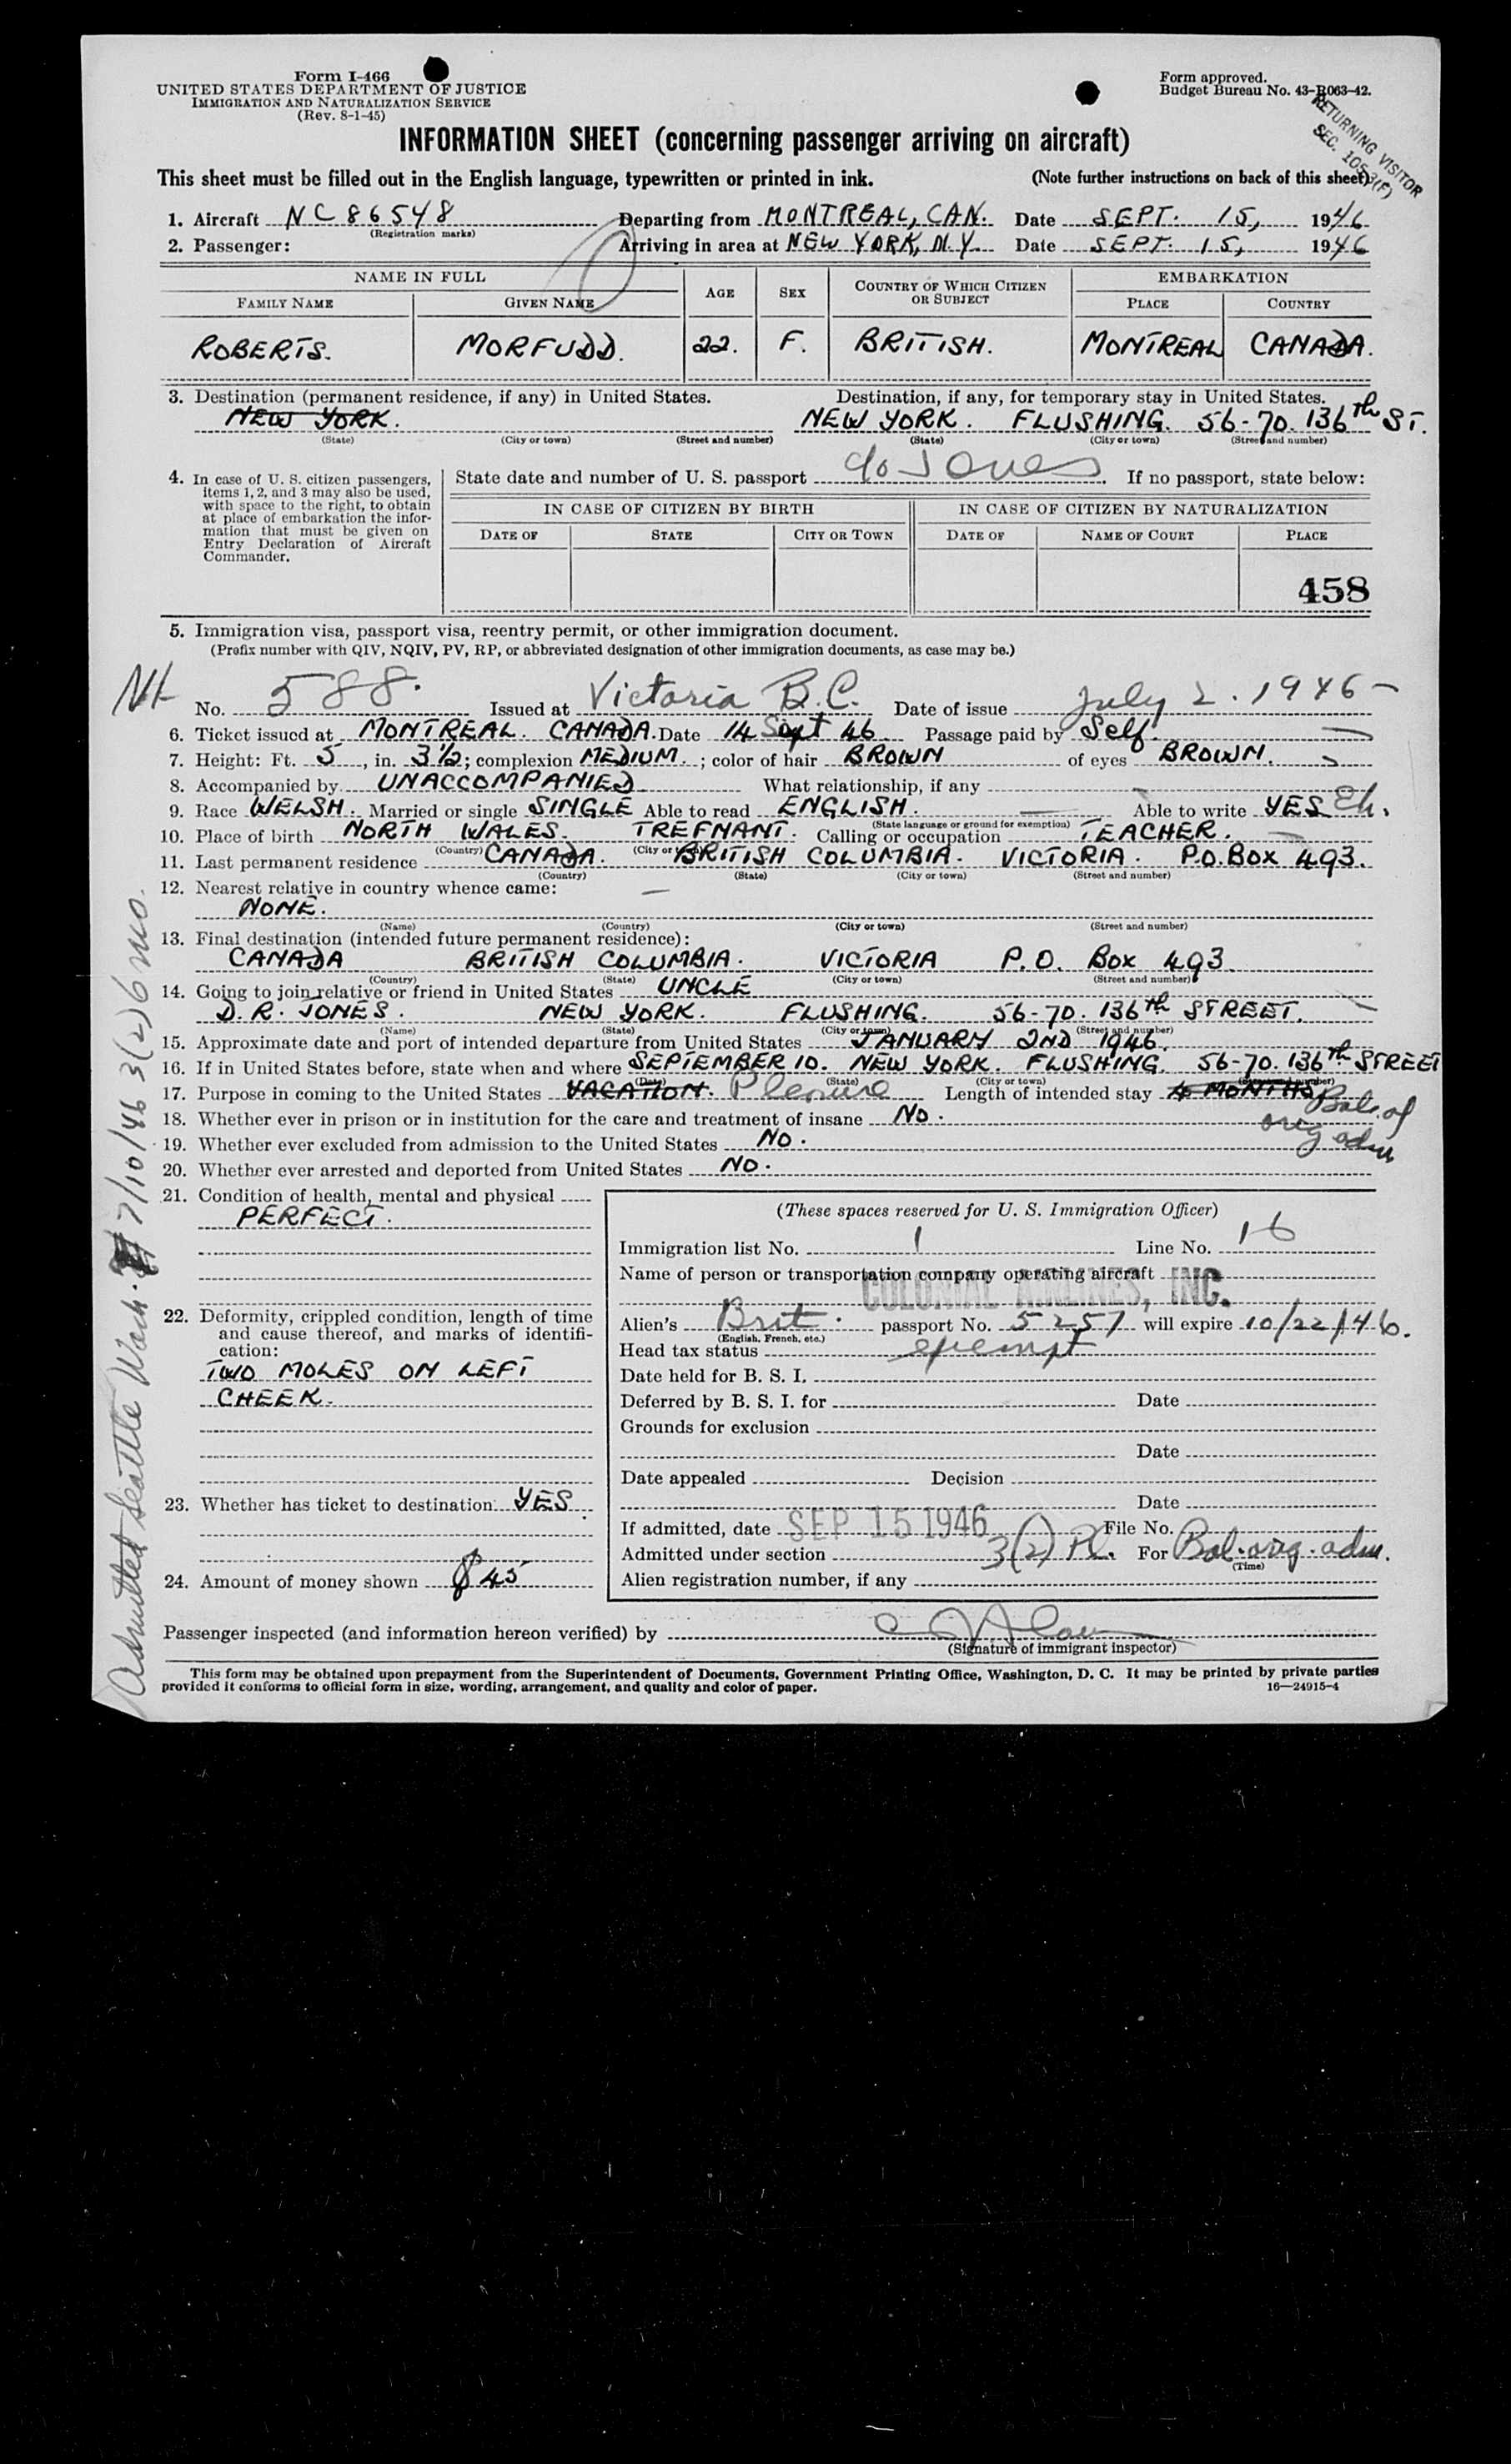 Form I-466
UNITED STATES DEPARTMENT OF JUSTICE
IMMIGRATION AND NATURALIZATION SERVICE
(Rev. 8-1-45)
Form approved.
Budget Bureau No. 43-R063-42.
RETURNING VISITOR
SEC. 105.3(F)
INFORMATION SHEET (concerning passenger arriving on aircraft)
This sheet must be filled out in the English language, typewritten or printed in ink. (Note further instructions on back of this sheet)
1. Aircraft NC86548 Departing from MONTREAL, CAN. Date SEPT. 15, 1946
(Registration marks)
2. Passenger: Arriving in area at NEW YORK, N.Y. Date SEPT. 15, 1946
NAME IN FULL AGE SEX COUNTRY OF WHICH CITIZEN OR SUBJECT EMBARKATION
FAMILY NAME GIVEN NAME PLACE COUNTRY
ROBERTS. MORFUDD. 22. F. BRITISH. MONTREAL CANADA.
3. Destination (permanent residence, if any) in United States. Destination, if any, for temporary stay in United States.
NEW YORK. NEW YORK. FLUSHING. 56-70. 136th ST.
(State) (City or town) (Street and number) (State) (City or town) (Street and number)
c/o Jones
4. In case of U. S. citizen passengers, items 1, 2, and 3 may also be used, with space to the right, to obtain at place of embarkation the information that must be given on Entry Declaration of Aircraft Commander.
State date and number of U. S. passport If no passport, state below:
IN CASE OF CITIZEN BY BIRTH IN CASE OF CITIZEN BY NATURALIZATION
DATE OF STATE CITY OR TOWN DATE OF NAME OF COURT PLACE
458
5. Immigration visa, passport visa, reentry permit, or other immigration document.
(Prefix number with QIV, NQIV, PV, RP, or abbreviated designation of other immigration documents, as case may be.)
No. 588. Issued at Victoria B.C. Date of issue July 2. 1946
6. Ticket issued at MONTREAL. CANADA. Date 14 Sept 46 Passage paid by Self.
7. Height: Ft. 5, in. 3½; complexion MEDIUM.; color of hair BROWN of eyes BROWN.
8. Accompanied by UNACCOMPANIED What relationship, if any -
9. Race WELSH. Married or single SINGLE Able to read ENGLISH. Able to write YES Eh.
(State language or ground for exemption)
10. Place of birth NORTH WALES. TREFNANT. Calling or occupation TEACHER.
(Country) (City or town)
11. Last permanent residence CANADA. BRITISH COLUMBIA. VICTORIA. P.O. BOX 493.
(Country) (State) (City or town) (Street and number)
12. Nearest relative in country whence came: —
NONE.
(Name) (Country) (City or town) (Street and number)
13. Final destination (intended future permanent residence):
CANADA BRITISH COLUMBIA. VICTORIA P.O. BOX 493.
(Country) (State) (City or town) (Street and number)
14. Going to join relative or friend in United States UNCLE
D. R. JONES. NEW YORK. FLUSHING. 56-70. 136th STREET.
(Name) (State) (City or town) (Street and number)
15. Approximate date and port of intended departure from United States JANUARY 2ND 1946.
16. If in United States before, state when and where SEPTEMBER 10. NEW YORK. FLUSHING. 56-70. 136th STREET
(Date) (State) (City or town) (Street and number)
17. Purpose in coming to the United States VACATION. Pleasure Length of intended stay 4 MONTHS Bal. of
orig adm
18. Whether ever in prison or in institution for the care and treatment of insane NO.
19. Whether ever excluded from admission to the United States NO.
20. Whether ever arrested and deported from United States NO.
21. Condition of health, mental and physical
PERFECT.
22. Deformity, crippled condition, length of time and cause thereof, and marks of identification:
TWO MOLES ON LEFT
CHEEK.
23. Whether has ticket to destination YES
24. Amount of money shown $45
(These spaces reserved for U. S. Immigration Officer)
Immigration list No. 1 Line No. 16
Name of person or transportation company operating aircraft
COLONIAL AIRLINES, INC.
Alien's Brit. passport No. 5257 will expire 10/22/46.
(English, French, etc.)
Head tax status exempt
Date held for B. S. I.
Deferred by B. S. I. for Date
Grounds for exclusion
Date
Date appealed Decision
Date
If admitted, date SEP 15 1946 File No.
Admitted under section 3(2) Pl. For Bal. orig. adm.
(Time)
Alien registration number, if any
Passenger inspected (and information hereon verified) by
(Signature of immigrant inspector)
This form may be obtained upon prepayment from the Superintendent of Documents, Government Printing Office, Washington, D. C. It may be printed by private parties
provided it conforms to official form in size, wording, arrangement, and quality and color of paper. 16—24915-4
Admitted Seattle Wash. 7/10/46 3(2) 6 mo.